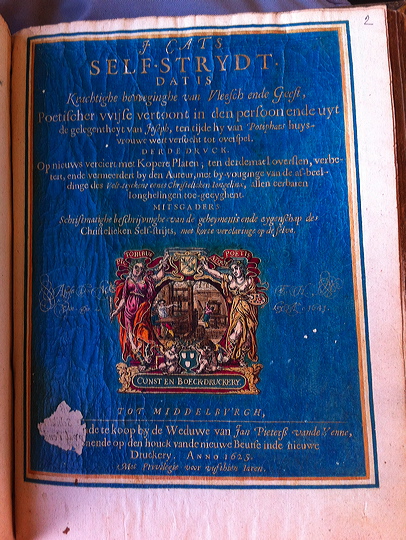 2
J. CATS
SELF-STRYDT.
DAT IS
Krachtighe beweginghe van Vleesch ende Geest,
Poetischer wijse vertoont in den persoon ende uyt
de gelegentheyt van Joseph, ten tijde hy van Potiphars huys-
vrouwe wert versocht tot overspel.
DERDE DRUCK.
Op nieuws verciert met Kopere Platen, ten derdemael oversien, verbe-
tert, ende vermeerdert by den Auteur, met by-vouginge van de af-beel-
dinge des eenes Christelicken Iongelincs, allen eerbaren
Ionghelingen toe-geeyghent.
MITSGADERS
Schriftmatighe beschrijvinghe van de geheymenis ende eygenschap des
Christelicken Self-strijts, met korte verclaringe op de selve.
POETIS
CUNST EN BOECK-DRUCKERY.
TOT MIDDELBURGH,
de te koop by de Weduwe van Jan Pieterss vande Venne,
nende op den houck vande nieuwe Beurse inde nieuwe
Druckery. ANNO 1625.
Met Privilegie voor Iaren.